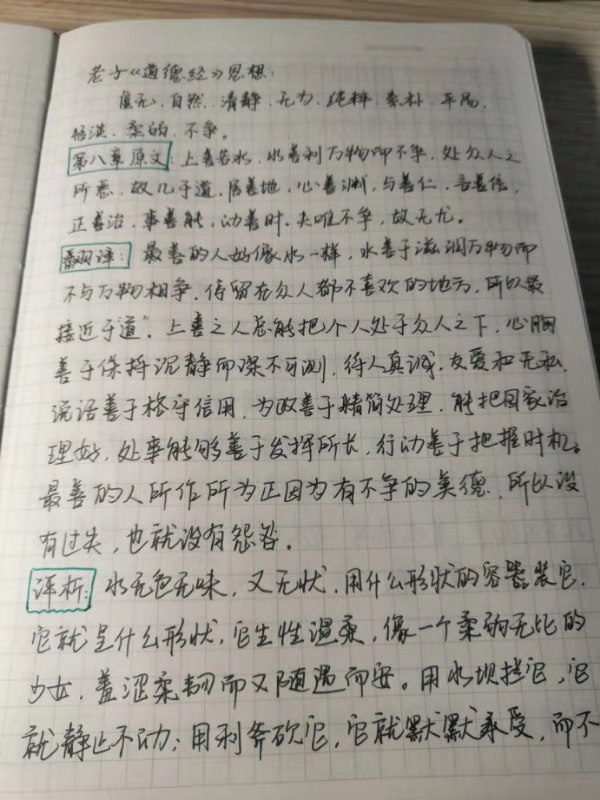 老子《道德经》思想:
虚无、自然、清静、无为、纯粹、素朴、平易、
恬淡、柔弱、不争。
第八章原文: 上善若水、水善利万物而不争、处众人之
所恶、故几于道、居善地、心善渊、与善仁、言善信、
正善治、事善能、动善时、夫唯不争、故无尤。
翻译: 最善的人好像水一样, 水善于滋润万物而
不与万物相争, 停留在众人都不喜欢的地方, 所以最
接近于道”。上善之人总能把个人处于众人之下, 心胸
善于保持沉静而深不可测, 待人真诚、友爱和无私,
说话善于恪守信用, 为政善于精简处理, 能把国家治
理好, 处事能够善于发挥所长, 行动善于把握时机。
最善的人所作所为正因为有不争的美德, 所以没
有过失, 也就没有怨咎。
评析: 水无色无味, 又无状, 用什么形状的容器装它,
它就呈什么形状, 它生性温柔, 像一个柔弱无比的
少女, 羞涩柔韧而又随遇而安。用水坝拦它, 它
就静止不动; 用利斧砍它, 它就默默承受, 而不